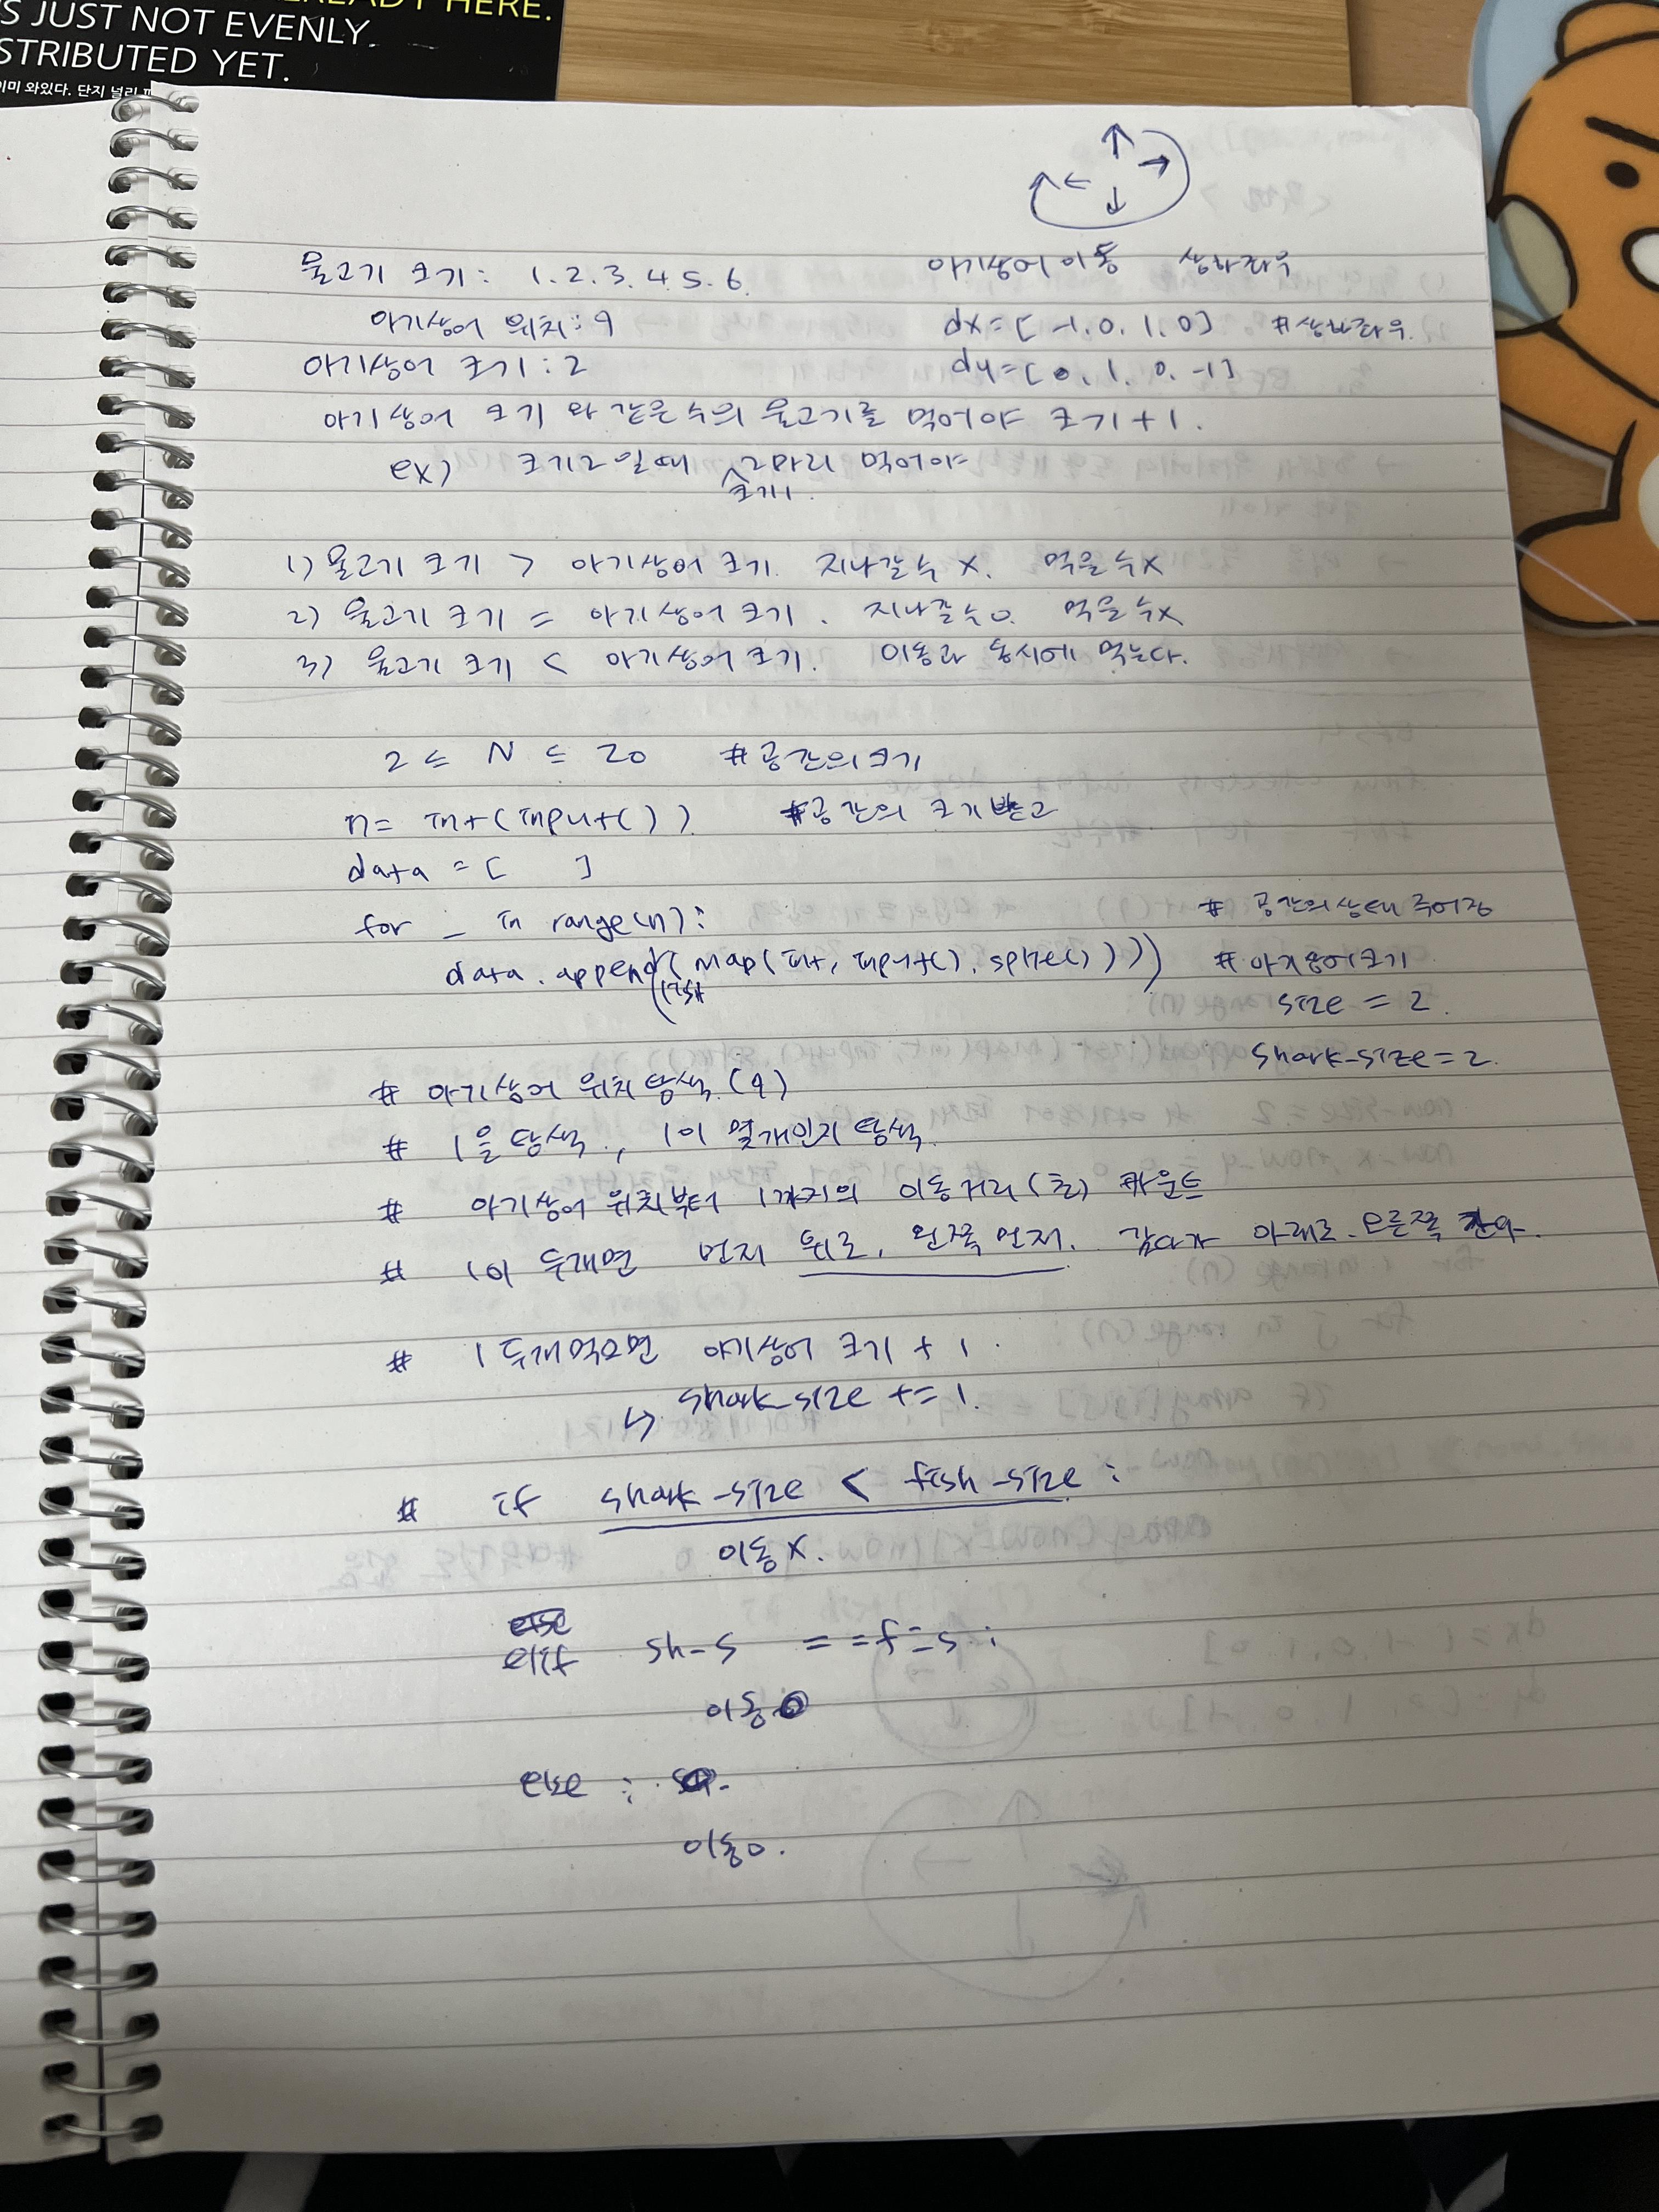 ALREADY HERE.
S JUST NOT EVENLY
STRIBUTED YET.
이미 와있다. 단지 널리
물고기 크기 : 1. 2. 3. 4. 5. 6.
아기상어 이동 상하좌우
아기상어 위치 : 9
dx = [ -1. 0. 1. 0] # 상하좌우.
아기상어 크기 : 2
dy = [ 0. 1. 0. -1]
아기상어 크기와 같은 수의 물고기를 먹어야 크기 + 1.
ex) 크기 2 일때 2마리 먹어야
크기1.
1) 물고기 크기 > 아기상어 크기. 지나갈 수 X. 먹을 수 X
2) 물고기 크기 = 아기상어 크기. 지나갈 수 O. 먹을 수 X
3) 물고기 크기 < 아기상어 크기. 이동과 동시에 먹는다.
2 ≤ N ≤ 20 # 공간의 크기
n = int(input()) # 공간의 크기 받고
data = [ ]
for _ in range(n): # 공간의 상태 주어짐
data.append(list(map(int, input().split()))) # 아기상어 크기
size = 2.
shark-size = 2.
# 아기상어 위치 탐색. (9)
# 1을 탐색., 1이 몇개인지 탐색.
# 아기상어 위치부터 1까지의 이동거리(초) 카운트
# 1이 두개면 먼저 위로, 왼쪽 먼저. 갔다가 아래로. 오른쪽
# 1 두개 먹으면 아기상어 크기 + 1.
↳ shark_size += 1.
# if shark-size < fish-size :
이동 X.
else
elif sh-s == f-s :
이동 O
else :
이동 O.